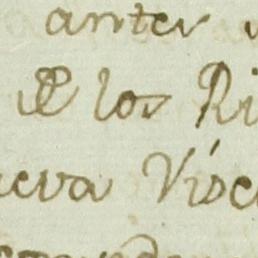 antes
de los Ri
ueva Visc